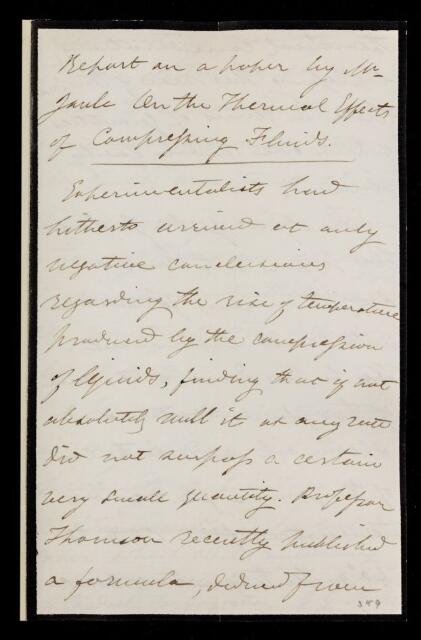 Report on a paper by Mr
Joule On the Thermal Effects
of Compressing Fluids.
Experimentalists had
hitherto arrived at only
negative conclusions
regarding the rise of temperature
produced by the compression
of liquids, finding that if not
absolutely null it at any rate
did not surpass a certain
very small quantity. Professor
Thomson recently published
a formula, derived from
389